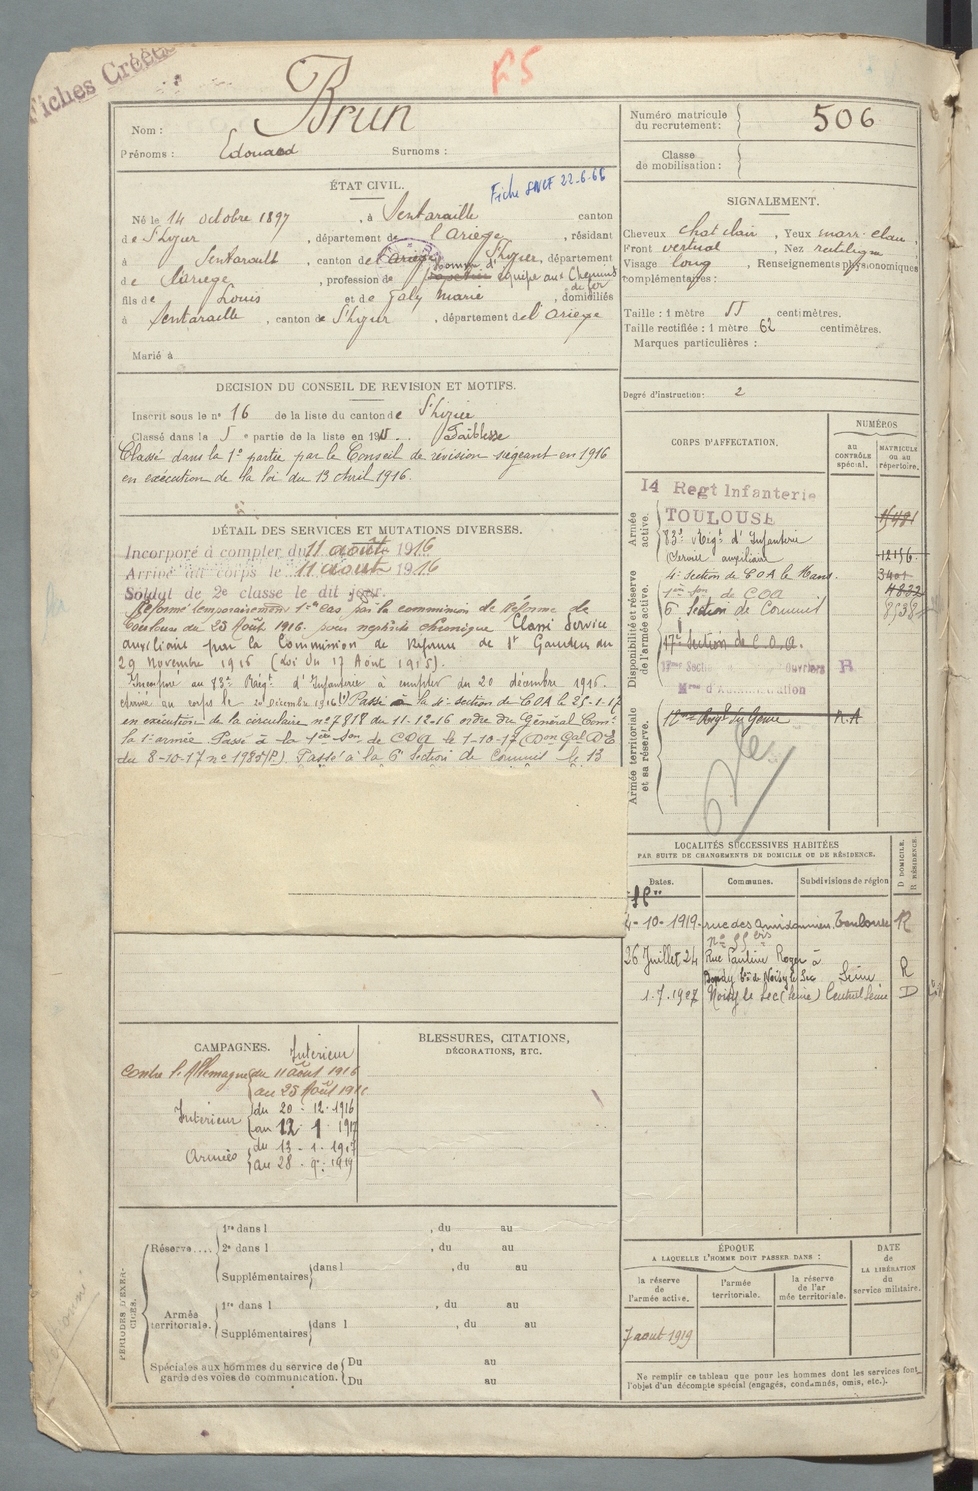 Fiches Créées
F5
Nom : Brun
Prénoms : Edouard Surnoms :
Numéro matricule du recrutement : 506
Classe de mobilisation :
ÉTAT CIVIL.
Fiche SNCF 22-6-66
Né le 14 octobre 1897, à Sentaraille canton
de St Lizier, département de l'Ariège, résidant
à Sentaraille, canton de St Lizier, département
de l'Ariège, profession de homme d'équipe aux Chemins de fer
fils de Louis et de Galy Marie, domiciliés
à Sentaraille, canton de St Lizier, département de l'Ariège
Marié à
SIGNALEMENT.
Cheveux chat clair, Yeux marr. clair,
Front vertical, Nez rectiligne
Visage long, Renseignements physionomiques
complémentaires :
Taille : 1 mètre 55 centimètres.
Taille rectifiée : 1 mètre 62 centimètres.
Marques particulières :
Degré d'instruction : 2
DECISION DU CONSEIL DE REVISION ET MOTIFS.
Inscrit sous le no 16 de la liste du canton de St Lizier
Classé dans la 5e partie de la liste en 1915. Faiblesse
Classé dans la 1e partie par le Conseil de révision siégeant en 1916
en exécution de la loi du 13 Avril 1916.
DÉTAIL DES SERVICES ET MUTATIONS DIVERSES.
Incorporé à compter du 11 août 1916
Arrivé au corps le 11 août 1916
Soldat de 2e classe le dit jour.
Réformé temporairement 1er cas par la commission de Réforme de
Toulouse du 23 Août 1916. pour néphrite chronique Classé Service
auxiliaire par la Commission de Réforme de St Gaudens du
29 Novembre 1916 (Loi du 17 Août 1915).
Incorporé au 83e Régt d'Infanterie à compter du 20 décembre 1916.
arrivé au corps le 20 décembre 1916 (1) Passé à la 4e section de COA le 25-1-17
en exécution de la circulaire no 7818 du 11-12-16 ordre du Général Comt
la 1e armée Passé à la 1ère Son de COA le 1-10-17
du 8-10-17 no 19851P.). Passé à la 6e Section de Commis le 13
CORPS D'AFFECTATION.
NUMÉROS
au CONTRÔLE spécial.
MATRICULE ou au répertoire.
Armée active.
14 Regt Infanterie
TOULOUSE
83e Régt d'Infanterie 12156
Service auxiliaire
Disponibilité et réserve de l'armée active.
4e section de COA le Mans. 3401
1ère Son de COA 4832
6e Section de Commis
17e Section de C.O.A.
17ème Section Ouvriers R
Mres d'Administration
Armée territoriale et sa réserve.
Régt du Génie R.A
LOCALITÉS SUCCESSIVES HABITÉES
PAR SUITE DE CHANGEMENTS DE DOMICILE OU DE RÉSIDENCE.
Dates. Communes. Subdivisions de région D DOMICILE. R RÉSIDENCE.
4-10-1919 rue des Amidonniers Toulouse R
no 55 bis
26 Juillet 24 Rue Pauline Roger à
Bondy Noisy le Sec Seine R
1.7.1927 Noisy le Sec (Seine) Central Seine D
CAMPAGNES.
Intérieur
Contre l'Allemagne du 11 août 1916
au 23 Août 1916
Intérieur du 20-12-1916
au 12 1 1917
Armées du 13-1-1917
au 28-9-1919
BLESSURES, CITATIONS,
DÉCORATIONS, ETC.
PÉRIODES D'EXERCICES.
Réserve.... 1re dans l , du au
2e dans l , du au
Supplémentaires dans l , du au
Armée territoriale. 1re dans l , du au
Supplémentaires dans l , du au
Spéciales aux hommes du service de garde des voies de communication. Du au
Du au
ÉPOQUE
A LAQUELLE L'HOMME DOIT PASSER DANS :
la réserve de l'armée active.
l'armée territoriale.
la réserve de l'armée territoriale.
DATE de LA LIBÉRATION du service militaire.
7 août 1919
Ne remplir ce tableau que pour les hommes dont les services font
l'objet d'un décompte spécial (engagés, condamnés, omis, etc.).